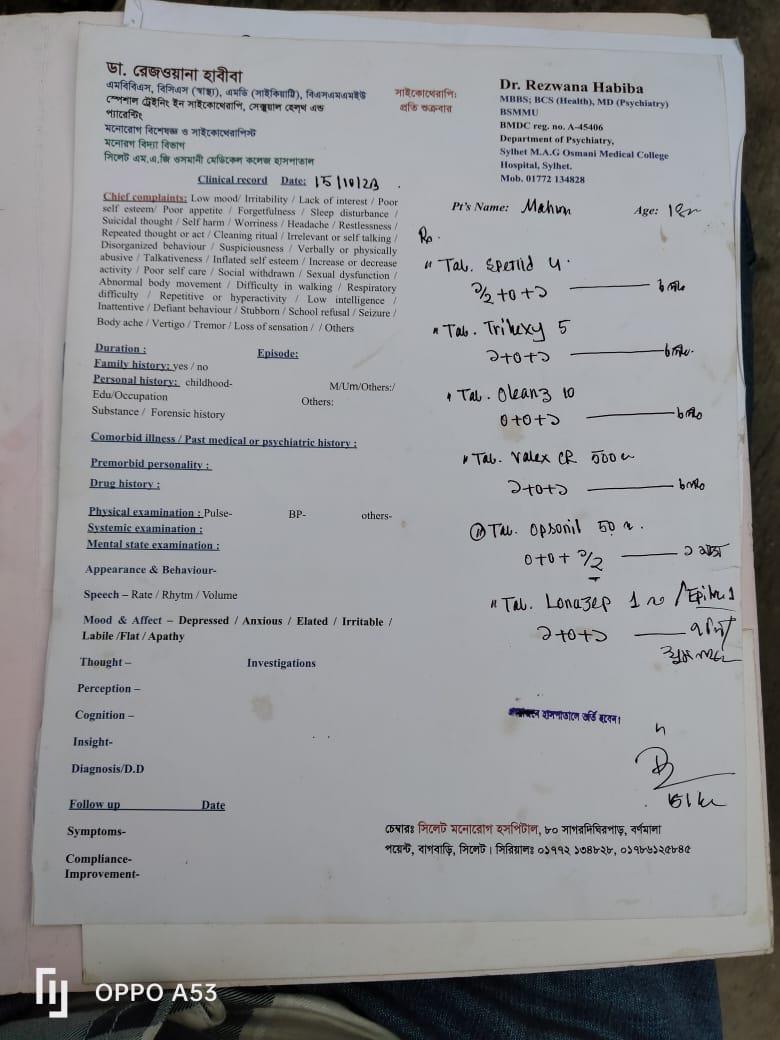 ডা. রেজওয়ানা হাবীবা
এমবিবিএস, বিসিএস (স্বাস্থ্য), এমডি (সাইকিয়াট্রি), বিএসএমএমইউ
স্পেশাল ট্রেইনিং ইন সাইকোথেরাপি, সেক্সুয়াল হেলথ এন্ড
প্যারেন্টিং
মনোরোগ বিশেষজ্ঞ ও সাইকোথেরাপিস্ট
মনোরোগ বিদ্যা বিভাগ
সিলেট এম.এ.জি ওসমানী মেডিকেল কলেজ হাসপাতাল
সাইকোথেরাপি:
প্রতি শুক্রবার
Dr. Rezwana Habiba
MBBS; BCS (Health), MD (Psychiatry)
BSMMU
BMDC reg. no. A-45406
Department of Psychiatry,
Sylhet M.A.G Osmani Medical College
Hospital, Sylhet.
Mob. 01772 134828
Clinical record Date: 15/10/23
Chief complaints: Low mood/ Irritability / Lack of interest / Poor
self esteem/ Poor appetite / Forgetfulness / Sleep disturbance /
Suicidal thought / Self harm / Worriness / Headache / Restlessness /
Repeated thought or act / Cleaning ritual / Irrelevant or self talking /
Disorganized behaviour / Suspiciousness / Verbally or physically
abusive / Talkativeness / Inflated self esteem / Increase or decrease
activity / Poor self care / Social withdrawn / Sexual dysfunction /
Abnormal body movement / Difficulty in walking / Respiratory
difficulty / Repetitive or hyperactivity / Low intelligence /
Inattentive / Defiant behaviour / Stubborn / School refusal / Seizure /
Body ache / Vertigo / Tremor / Loss of sensation / / Others
Duration : Episode:
Family history: yes / no
Personal history: childhood- M/Um/Others:/
Edu/Occupation Others:
Substance / Forensic history
Comorbid illness / Past medical or psychiatric history :
Premorbid personality :
Drug history :
Physical examination : Pulse- BP- others-
Systemic examination :
Mental state examination :
Appearance & Behaviour-
Speech – Rate / Rhytm / Volume
Mood & Affect – Depressed / Anxious / Elated / Irritable /
Labile /Flat / Apathy
Thought – Investigations
Perception –
Cognition –
Insight-
Diagnosis/D.D
Follow up Date
Symptoms-
Compliance-
Improvement-
Pt's Name: Mahin Age: 18
Rx.
Tab. 4
১/২+০+১
Tab. Trihexy 5
১+০+১
Tab. Oleanz 10
০+০+১
Tab. Valex CR 500
১+০+১
Tab. Opsonil 50
০+০+ ১/২ ১ মাস
Tab. Lonazep 1
১+০+১
হাসপাতালে ভর্তি হবেন।
চেম্বারঃ সিলেট মনোরোগ হসপিটাল, ৮০ সাগরদিঘিরপাড়, বর্ণমালা
পয়েন্ট, বাগবাড়ি, সিলেট। সিরিয়ালঃ ০১৭৭২ ১৩৪৮২৮, ০১৯৮৬১২৫৮৪৫
OPPO A53